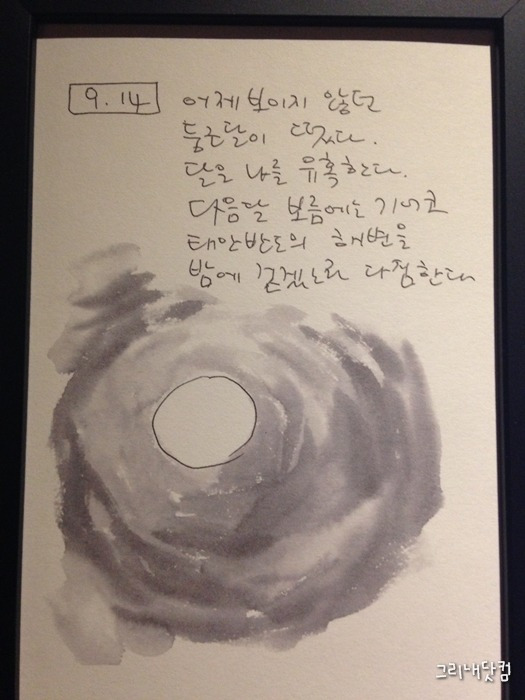 9.14
어제 보이지 않던
둥근달이 떴다.
달은 나를 유혹한다.
다음달 보름에는 기어코
태안반도의 해변을
밤에 걷겠노라 다짐한다
그리내닷컴